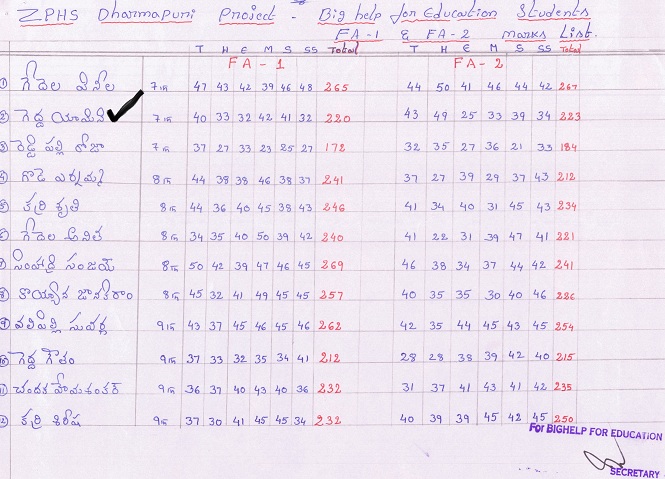 ZPHS Dharmapuri Project - Big help for Education Students
FA-1 & FA-2 marks List.
T H E M S SS Total T H E M S SS Total
FA-1 FA-2
① గేదెల వినీల 7th 47 43 42 39 46 48 265 44 50 41 46 44 42 267
② గెద్ద యామిని 7th 40 33 32 42 41 32 220 43 49 25 33 39 34 223
③ రెడ్డి పల్లి రోజా 7th 37 27 33 23 25 27 172 32 35 27 36 21 33 184
④ గొడె ఎర్నమ్మ 8th 44 38 38 46 38 37 241 37 27 39 29 37 43 212
⑤ కర్రి శృతి 8th 44 36 40 45 38 43 246 41 34 40 31 45 43 234
⑥ గేదెల అనిత 8th 34 35 40 50 39 42 240 41 22 31 39 47 41 221
⑦ సింహాద్రి సంజయ్ 8th 50 42 39 47 46 45 269 46 38 34 37 44 42 241
⑧ కాయ్యాన జానకీరాం 8th 45 32 41 49 45 45 257 40 35 35 30 40 46 226
⑨ వలిపల్లి సువర్ణ 9th 43 37 45 46 45 46 262 42 35 44 45 43 45 254
⑩ గెద్ద గౌతం 9th 37 33 32 35 34 41 212 28 28 38 39 42 40 215
⑪ చందక హేమశంకర్ 9th 36 37 40 43 40 36 232 31 37 41 43 41 42 235
⑫ కర్రి శిరీష 9th 37 30 41 45 45 34 232 40 39 39 45 42 45 250
For BIGHELP FOR EDUCATION
SECRETARY